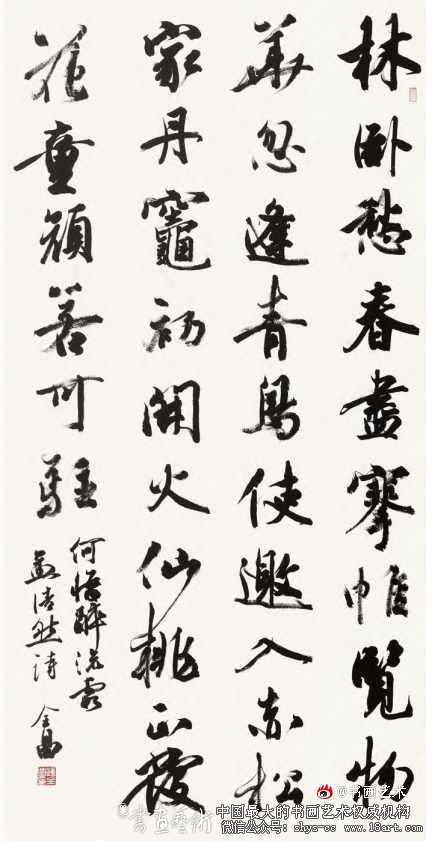 林卧愁春盡搴帷覽物
華忽逢青鳥使邀入赤松
家丹竈初開火仙桃正發
花童顔若可駐
何惜醉流霞
孟浩然詩
@书画艺术
書畫藝術
中国最大的书画艺术权威机构
微信公众号：shys-cc www.18art.com